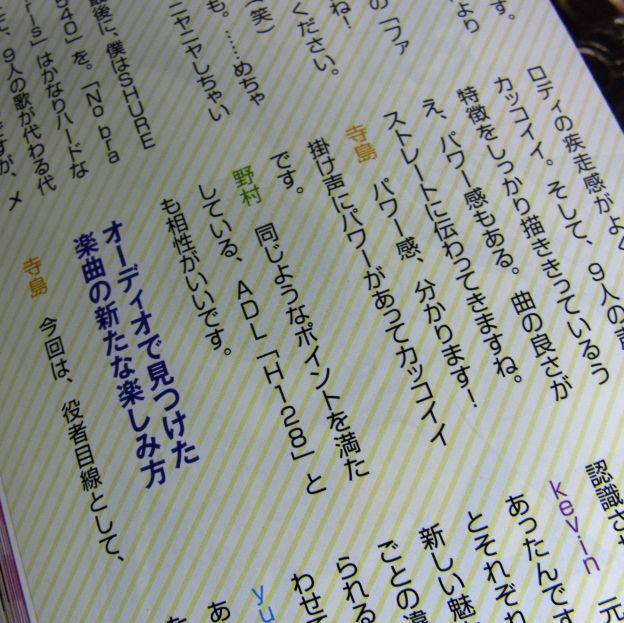 ロディの疾走感がよく
カッコイイ。そして、9人の声
特徴をしっかり描ききっているう
え、パワー感もある。曲の良さが
ストレートに伝わってきますね。
寺島 パワー感、分かります!
掛け声にパワーがあってカッコイイ
です。
野村 同じようなポイントを満た
している、ADL「H128」と
も相性がいいです。
オーディオで見つけた
楽曲の新たな楽しみ方
寺島 今回は、役者目線として、
す。
より
の「ファ
ね!
ください。
(笑)
も。……めちゃ
ニヤニヤしちゃい
最後に、僕はSHURE
540」を。「No bra
r is」はかなりハードな
、9人の歌が代わる代
ですが、メ
認識さ
kevin 元
あったんです
とそれぞれ
新しい魅
ごとの違
られる
わせて
yu
あ